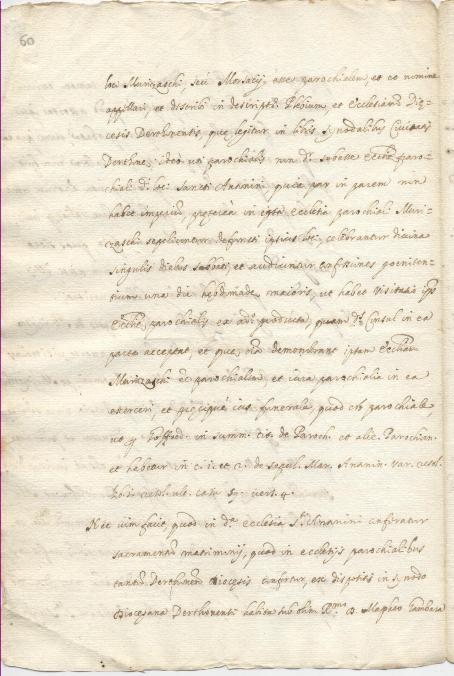 60
loci Muricaschi, seu Morsacij, esset parochialem, et eo nomine
appellari, et describi in descript.e et Ecclesiarum Dio-
cesis Derthonensis, que legitur in libris synodalibus Civitatis
Derthone, ideo uti parochialis non d. subesse Eccl.e paro-
chiali d. loci Sancti Ananini quia par in parem non
habet imperium, in ista Ecclesia parochiali Muri-
caschi sepeliuntur defuncti ipsius loci, celebrantur divina
singulis diebus sabbati, et audiuntur confessiones poeniten-
tium una die hebdomade maioris, ut habet visitatio ips.
Eccl.e parochialis ea die producta, quam D. Consul in ea
parte acceptat, et que demonstrant ipsam Eccl.am
Muricaschi e.e parochialem et iura parochialia in ea
exerceri, et ius funerale, quod est parochiale
in summ. tit. de Paroch. et alie. Parochian.
et habetur in c. 1. et 2. de sepul. Mar. Ananin. var. resol.
resol. ult. casu 59. vers. 4.
Nec vim facit, quod in d.a ecclesia S.ti Ananini conferatur
sacramentum matrimonij, quod in ecclesijs parochialibus
tantum Derthonen. Diocesis confertur, ex dispositis in synodo
Diocesana Derthonensi habita sub olim R.mo D. Mapheo Gambara